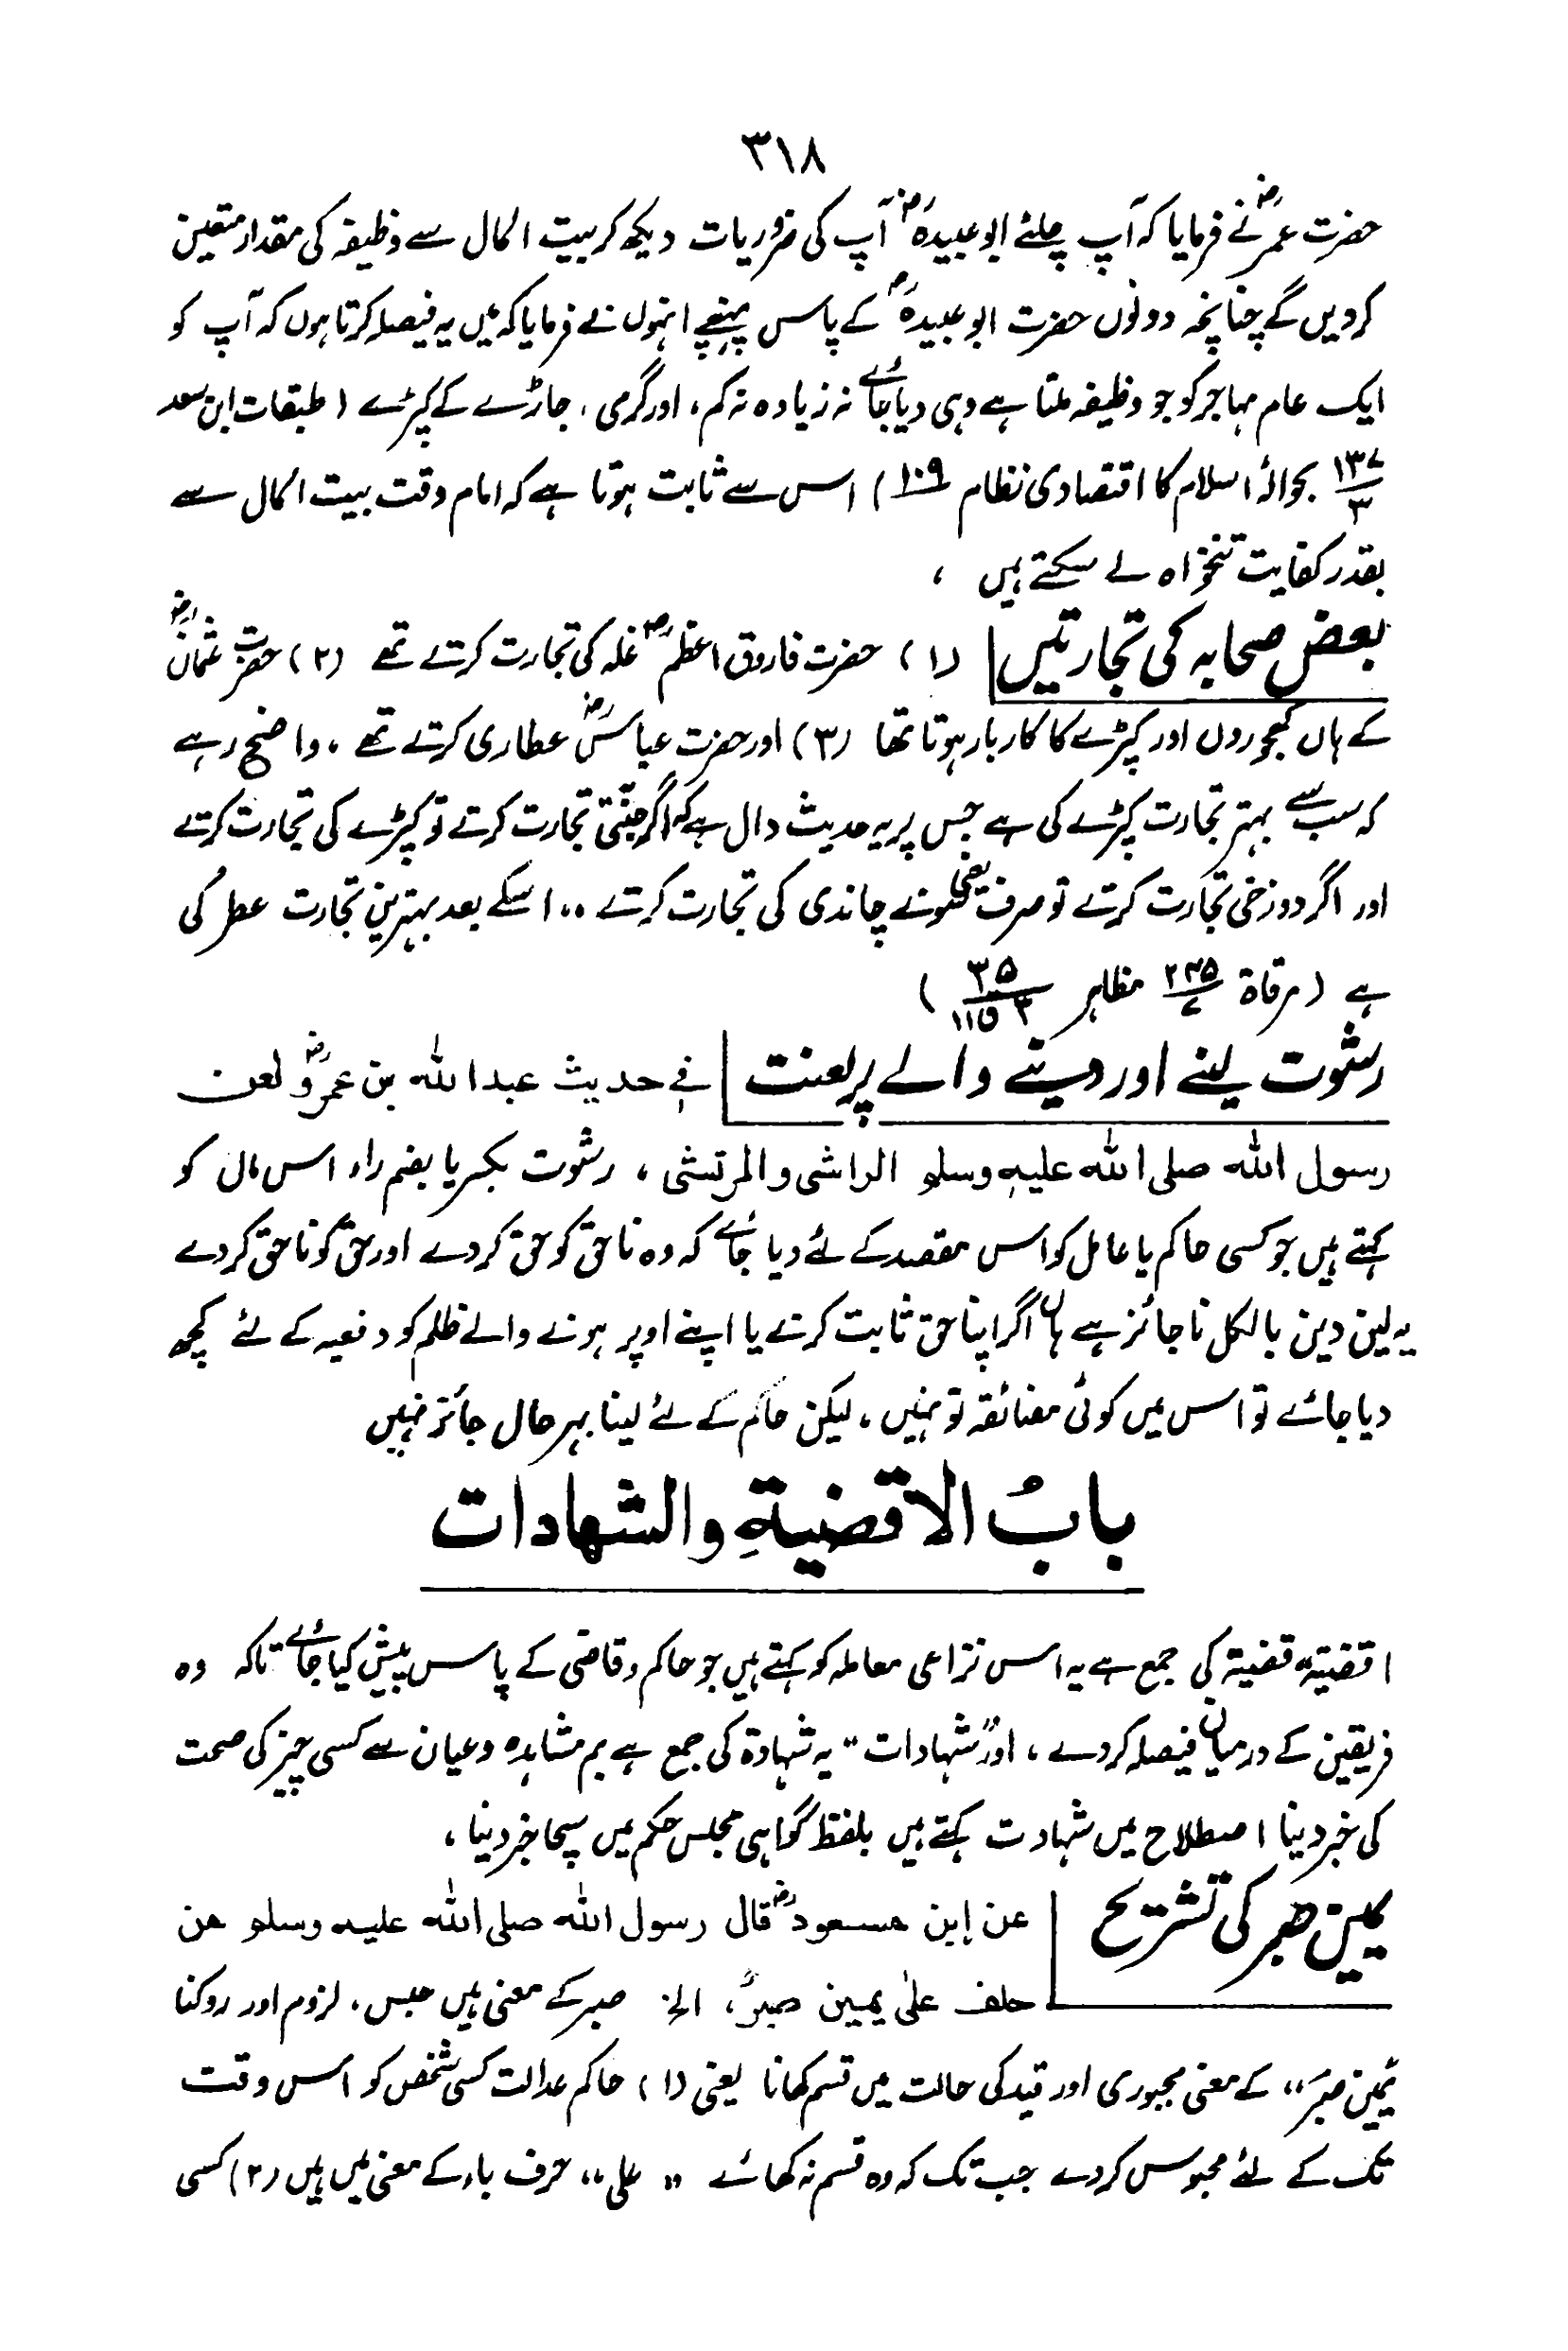 ۳۱۸
حضرت عمرؓ نے فرمایا کہ آپ چلئے ابو عبیدہؓ آپ کی ضروریات دیکھ کر بیت المال سے وظیفہ کی مقدار متعین
کردیں گے چنانچہ دونوں حضرت ابو عبیدہؓ کے پاس پہنچے انہوں نے فرمایا کہ میں یہ فیصلہ کرتا ہوں کہ آپ کو
ایک عام مہاجر کو جو وظیفہ ملتا ہے وہی دیا جائے نہ زیادہ نہ کم، اور گرمی، جاڑے کے کپڑے (طبقات ابن سعد
۱۳۷/۳ بحوالۂ اسلام کا اقتصادی نظام ۱۰۹) اس سے ثابت ہوتا ہے کہ امام وقت بیت المال سے
بقدر کفایت تنخواہ لے سکتے ہیں ،
بعض صحابہ کی تجارتیں (۱) حضرت فاروق اعظمؓ غلہ کی تجارت کرتے تھے (۲) حضرت عثمانؓ
کے ہاں کھجوروں اور کپڑے کا کاربار ہوتا تھا (۳) اور حضرت عباسؓ عطاری کرتے تھے ، واضح رہے
کہ سب سے بہتر تجارت کپڑے کی ہے جس پر یہ حدیث دال ہے کہ اگر جنتی تجارت کرتے تو کپڑے کی تجارت کرتے
اور اگر دوزخی تجارت کرتے تو صرف یعنی سونے چاندی کی تجارت کرتے ،، اسکے بعد بہترین تجارت عطر کی
ہے (مرقاۃ ۲۴۵/۷ مظاہر ۳۵/۱۱۵۳)
رشوت لینے اور دینے والے پر لعنت فی حدیث عبد اللہ بن عمروؓ لعن
رسول اللہ صلی اللہ علیہ وسلم الراشی والمرتشی ، رشوت بکسر یا بضم راء اس مال کو
کہتے ہیں جو کسی حاکم یا عامل کو اس مقصد کے لئے دیا جائے کہ وہ ناحق کو حق کردے اور حق کو ناحق کردے
یہ لین دین بالکل ناجائز ہے ہاں اگر اپنا حق ثابت کرنے یا اپنے اوپر ہونے والے ظلم کو دفعیہ کے لئے کچھ
دیا جائے تو اس میں کوئی مضائقہ تو نہیں ، لیکن حاکم کے لئے لینا بہر حال جائز نہیں
بابُ الاقضیۃِ والشہادات
اقضیۃ، قضیۃ کی جمع ہے یہ اس نزاعی معاملہ کو کہتے ہیں جو حاکم وقاضی کے پاس پیش کیا جائے تاکہ وہ
فریقین کے درمیان فیصلہ کردے ، اور "شہادات" یہ شہادۃ کی جمع ہے بم مشاہدہ وعیان سے کسی چیز کی صحت
کی خبر دینا اصطلاح میں شہادت کہتے ہیں بلفظ گواہی مجلس حکم میں سچا خبر دینا ،
یمین صبر کی تشریح عن إبن مسعودؓ قال رسول اللہ صلی اللہ علیہ وسلم من
حلف علیٰ یمین صبرٍ، الخ صبر کے معنی ہیں حبس، لزوم اور روکنا
یمین صبر،، کے معنی مجبوری اور قید کی حالت میں قسم کھانا یعنی (۱) حاکم عدالت کسی شخص کو اس وقت
تک کے لئے محبوس کردے جب تک کہ وہ قسم نہ کھائے ،، علی،، حرف باء کے معنی میں ہیں (۲) کسی